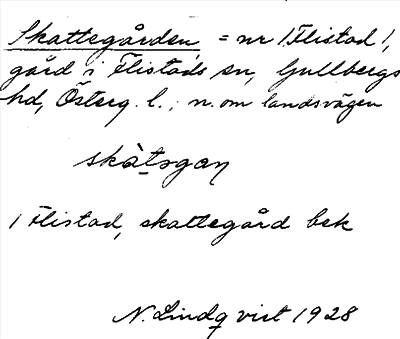 Skattegården = nr 1 Flistad 1,
gård i Flistads sn, Gullbergs
hd, Österg. l.; n. om landsvägen
skàtsgan
1 Flistad, skattegård bek
N. Lindqvist 1928